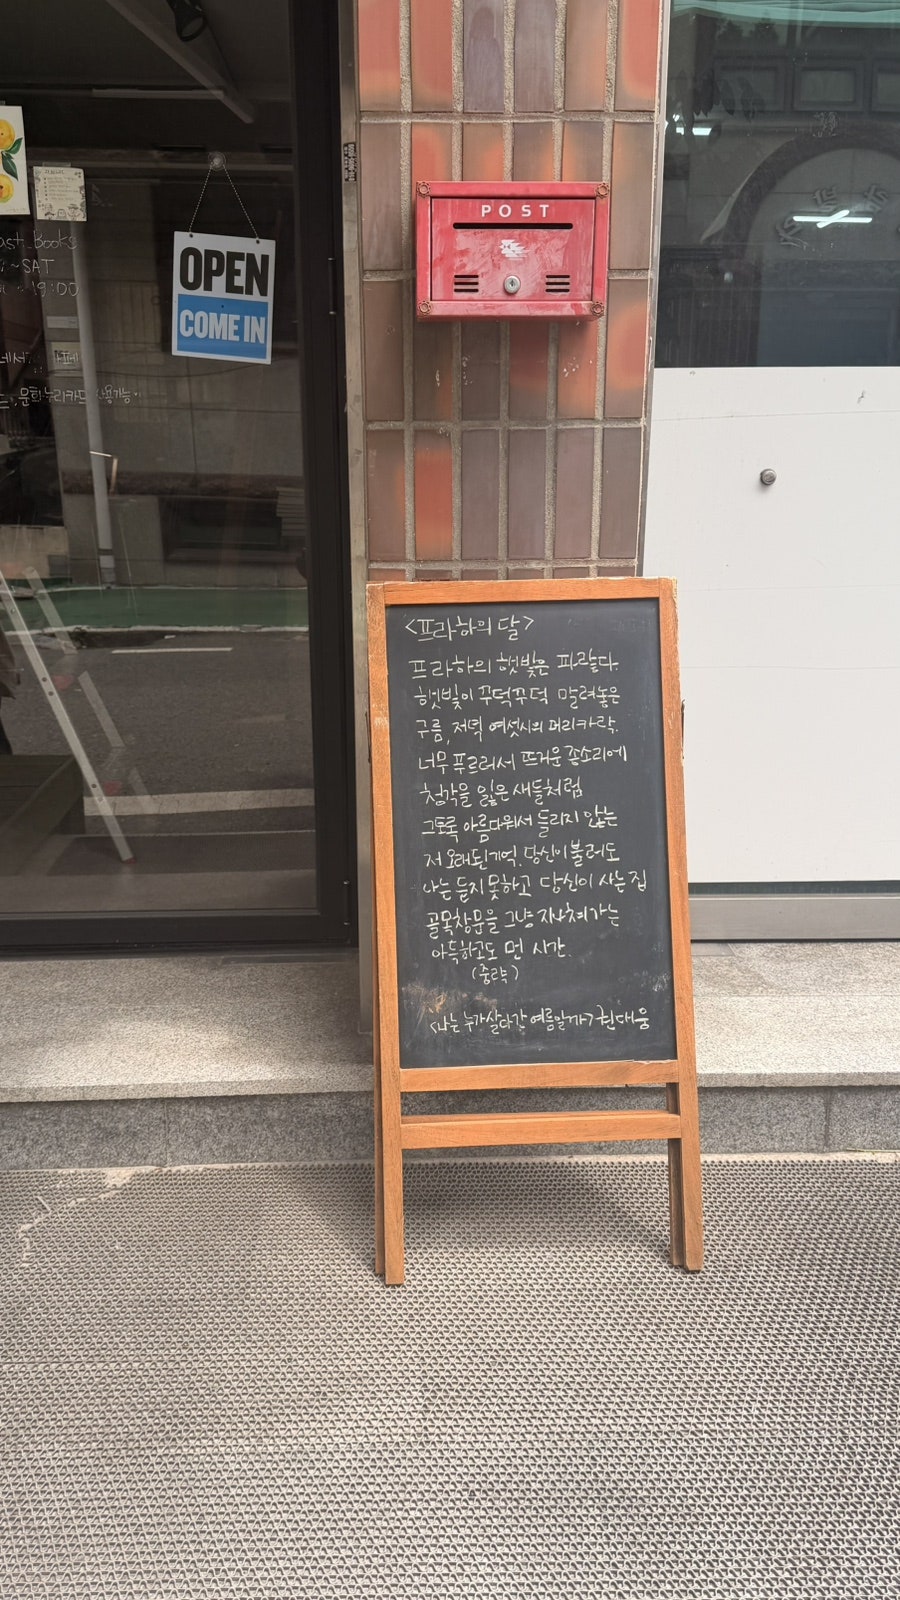 OPEN
COME IN
POST
Books
~SAT
19:00
문화누리카드 사용가능
<프라하의 달>
프라하의 햇빛은 파랗다
햇빛이 꾸덕꾸덕 말려놓은
구름, 저녁 여섯시의 머리카락.
너무 푸르러서 뜨거운 종소리에
청각을 잃은 새들처럼
그토록 아름다워서 들리지 않는
저 오래된 기억. 당신이 불러도
나는 듣지 못하고 당신이 사는 집
골목창문을 그냥 지나쳐가는
아득하고도 먼 시간.
(중략)
<나는 누가 살다간 여름일까> 권대웅